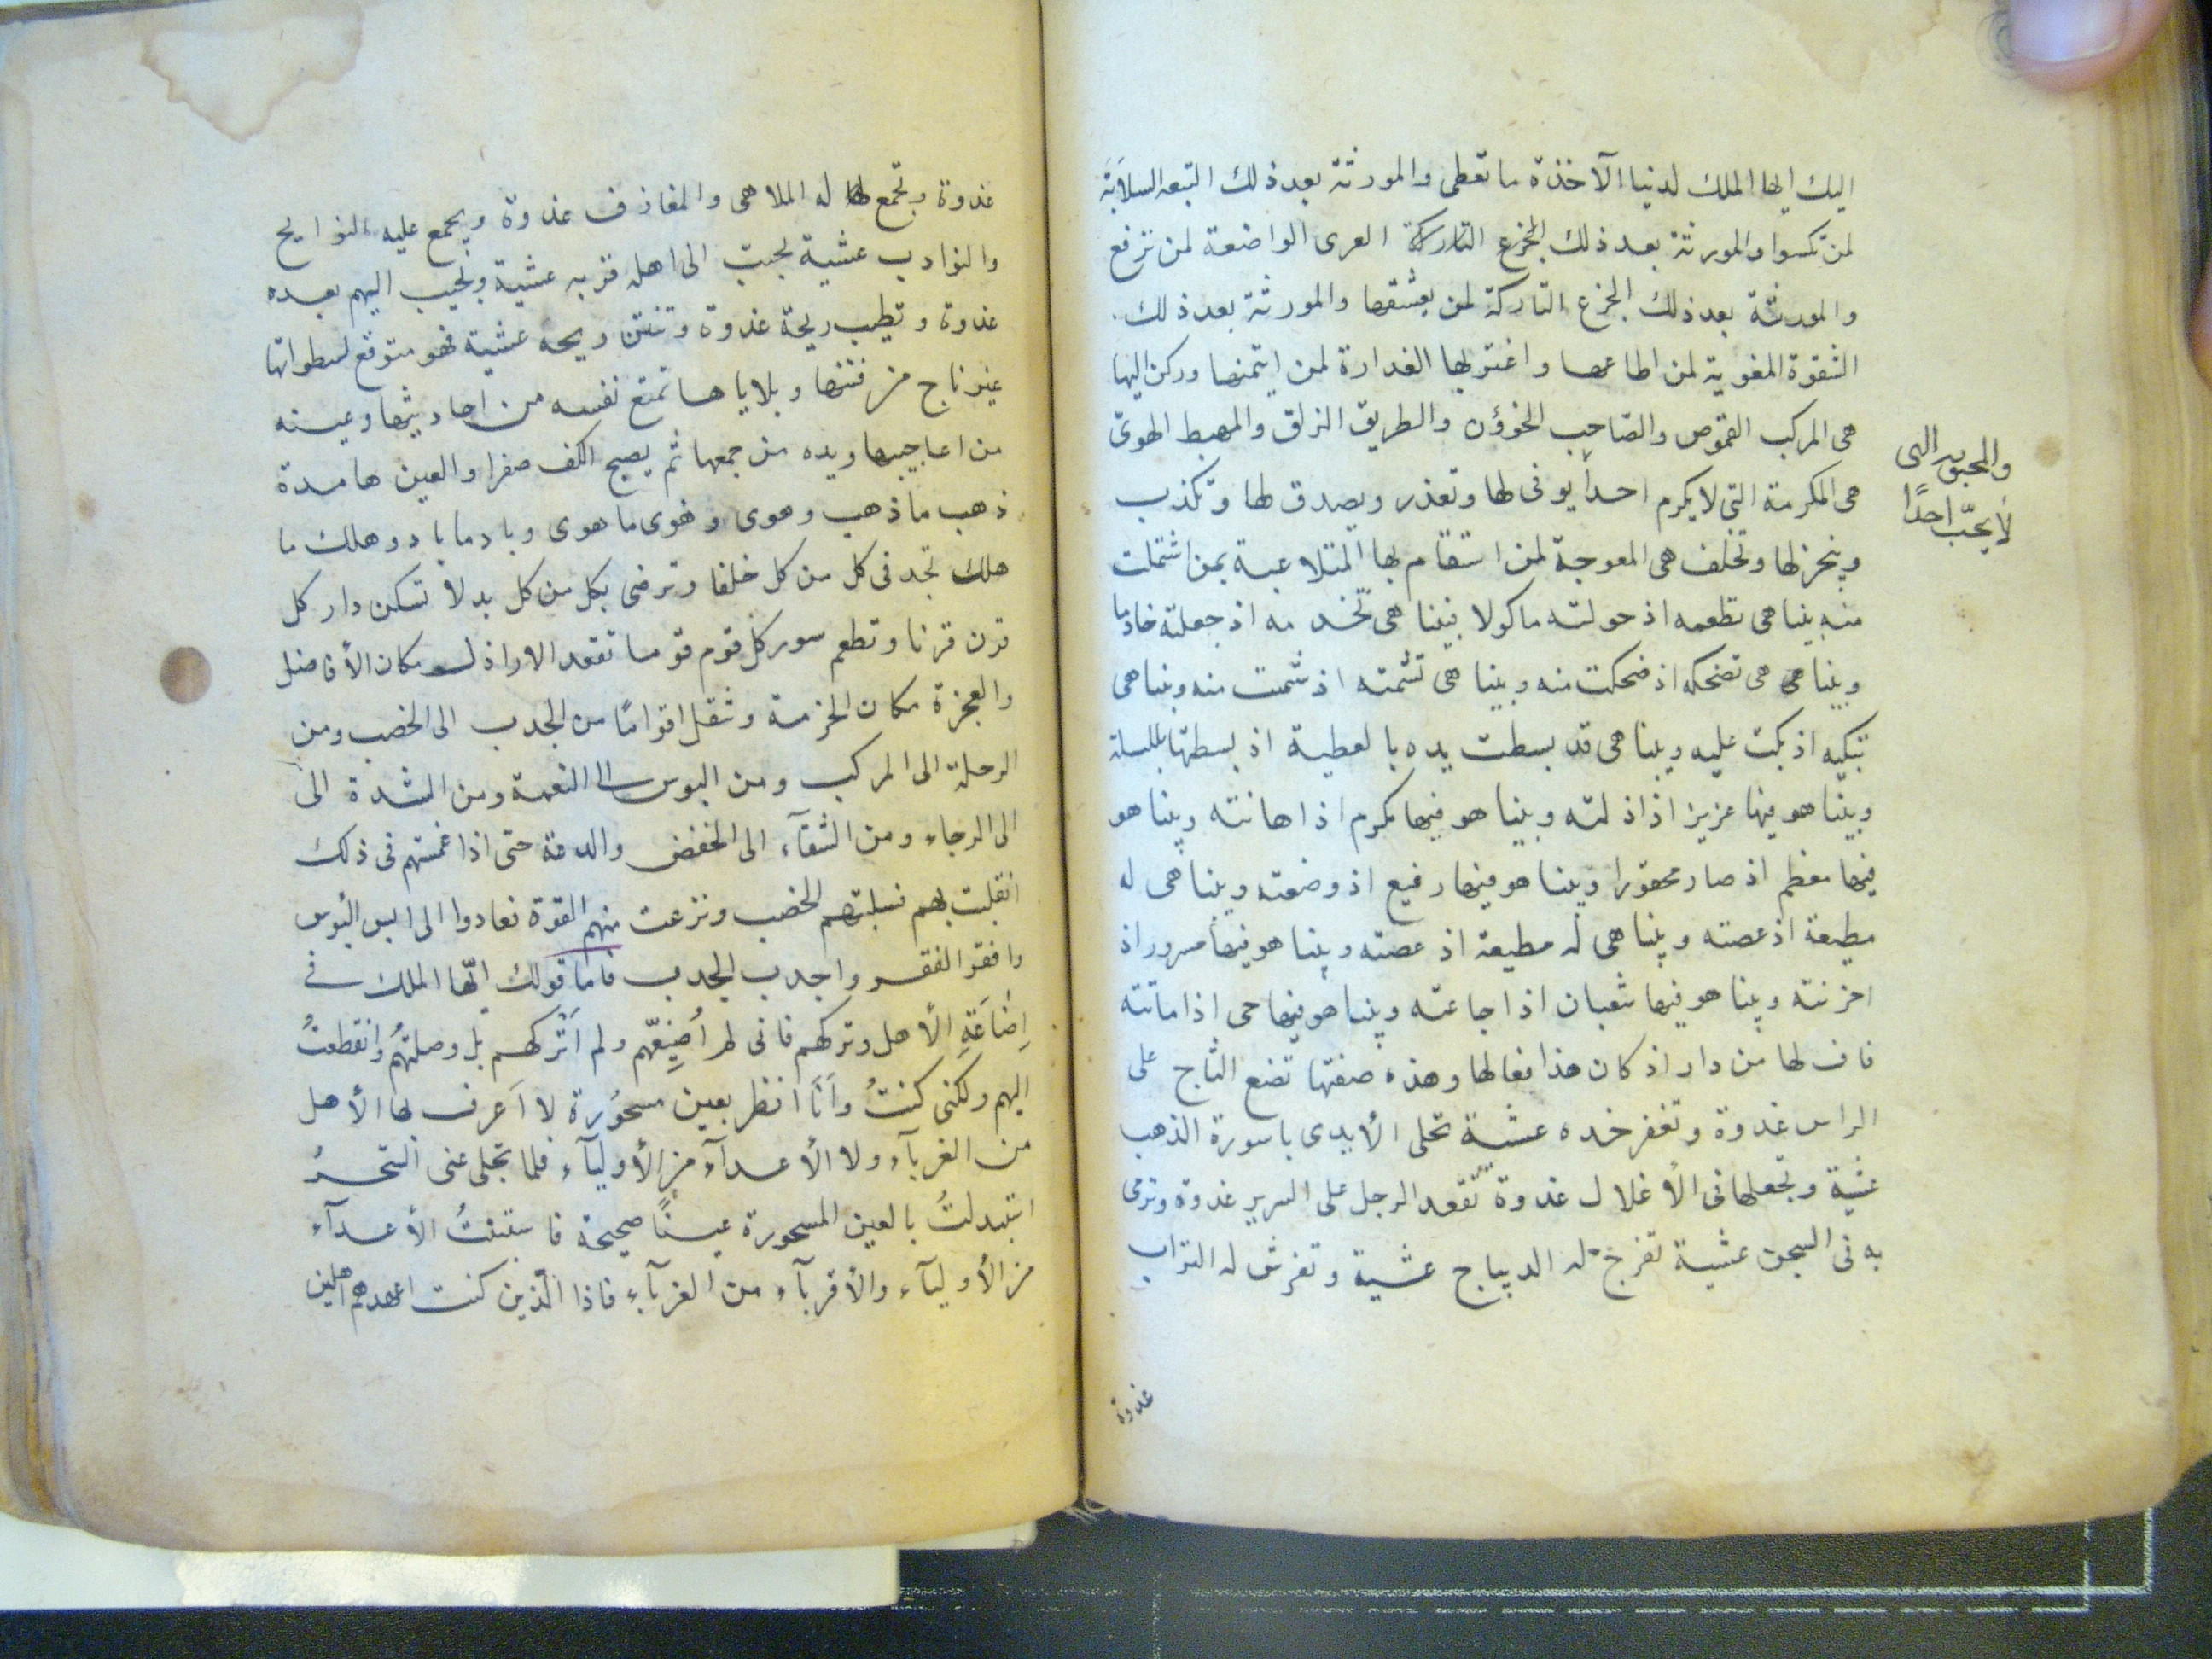 اليك ايها الملك لدنيا الآخذة ما تعطى والمورثة بعد ذلك التبعه السلابَة
لمن تكسوا والمورثة بعد ذلك الجزع التاركة العرى الواضعة لمن ترفع
والمورثة بعد ذلك الجزع التاركة لمن يعشقها والمورثة بعد ذلك
الشقوة المغوية لمن اطاعها واغتر بها الغدارة لمن ايتمنها وركن اليها
هى المركب القموص والصّاحب الخوؤن والطريق الزلق والمهبط الهوىّ
هى المكرمة التى لا يكرم احداً يوفى لها وتعذر ويصدق لها وتكذب
والمحبوبه التى
لا يحبّ احدًا
وينجز لها وتخلف هى المعوجة لمن استقام بها المتلاعبة بمن اشتملت
منه بينا هى تطعمه اذ حولته ماكولا فبينا هى تخدمه اذ جعلته خادما
وبينا هى تضحكه اذ ضحكت منه وبينا هى تشمته اذ شمتت منه وبينا هى
تبكيه اذ بكت عليه وبينا هى قد بسطت يده بالعطية اذ بسطتها بالمسلة
وبينا هو فيها عزيز اذ اذلته وبينا هو فيها مكرم اذا هانته وبينا هو
فيها معظم اذ صار محقورا وبينا هو فيها رفيع اذ وضعته وبينا هى له
مطيعة اذ عصته وبينا هى له مطيعة اذ عصته وبينا هو فيها مسرور اذ
احزنته وبينا هو فيها شعبان اذا جاعته وبينا هو فيها حى اذا ماتته
فاف لها من دار اذ كان هذا فعالها وهذه صفتها تضع التاج على
الراس غدوة وتعفر خده عشية تحلى الأيدى باسورة الذهب
عشية وتجعلها فى الأغلال غدوة تقعد الرجل على السرير غدوة وترمى
به فى السجن عشية تفرخ له الديباج عشية وتفرش له التراب
غدوة
غدوة وتجمع له الملاهى والمعازف غدوة ويجمع عليه النوايح
والنوادب عشية تحبب الى اهله قربه عشية وتحبب اليهم بعده
غدوة وتطيب ريحة غدوة وتنتن ريحه عشية فهو متوقع لسطواتها
غير ناج من فتنها وبلاياها تمتع نفسه من احاديثها وعينه
من اعاجيبها ويده من جمعها ثم يصبح الكف صفرا والعين هامدة
ذهب ما ذهب وهوى وهوى ما هوى وباد ما باد وهلك ما
هلك تجد فى كل من كل خلفا وترضى بكل من كل بدلا تسكن دار كل
قرن قرنا وتطعم سور كل قوم قوما تقعد الاراذل مكان الأفاضل
والعجزة مكان الحزمة وتنقل اقوامًا من الجدب الى الخصب ومن
الرحلة الى المركب ومن البوس الى النعمة ومن الشدة الى
الى الرجاء ومن الشقآء الى الخفض والدعة حتى اذا غمستهم فى ذلك
انقلبت بهم فسلبتهم الخصب ونزعت منهم القوة فعادوا الى ابس البُوس
وافقر الفقر واجدب الجدب فاما قولك ايّها الملك فى
اِضاعَةِ الأهل وتركهم فانى لم أضِيعّهم ولم اَترُكهم بل وصلتُهُم وانقطعتُ
اليهم ولكنى كنتُ وَاَنَا انظر بعين مسحوُرة لا اَعرف لها الأهل
من الغربآء ولا الأعدآء من الأوليآء فلما تجلى عنى السّحرُ
استبدلتُ بالعين المسحورة عينًا صحيحة فاستبنتُ الأعدآء
من الأوليآء والأقربآء من الغربآء فاذا الّذين كنت اعدهم اهلين